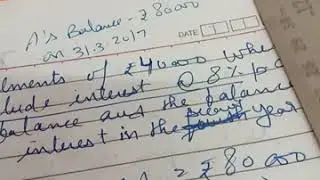 A's Balance - ₹80000
on 31.3.2017
DATE
lments of ₹40000 whe
lude interest @ 8% p.a
balance and the balance
interest in the second year
= ₹80000